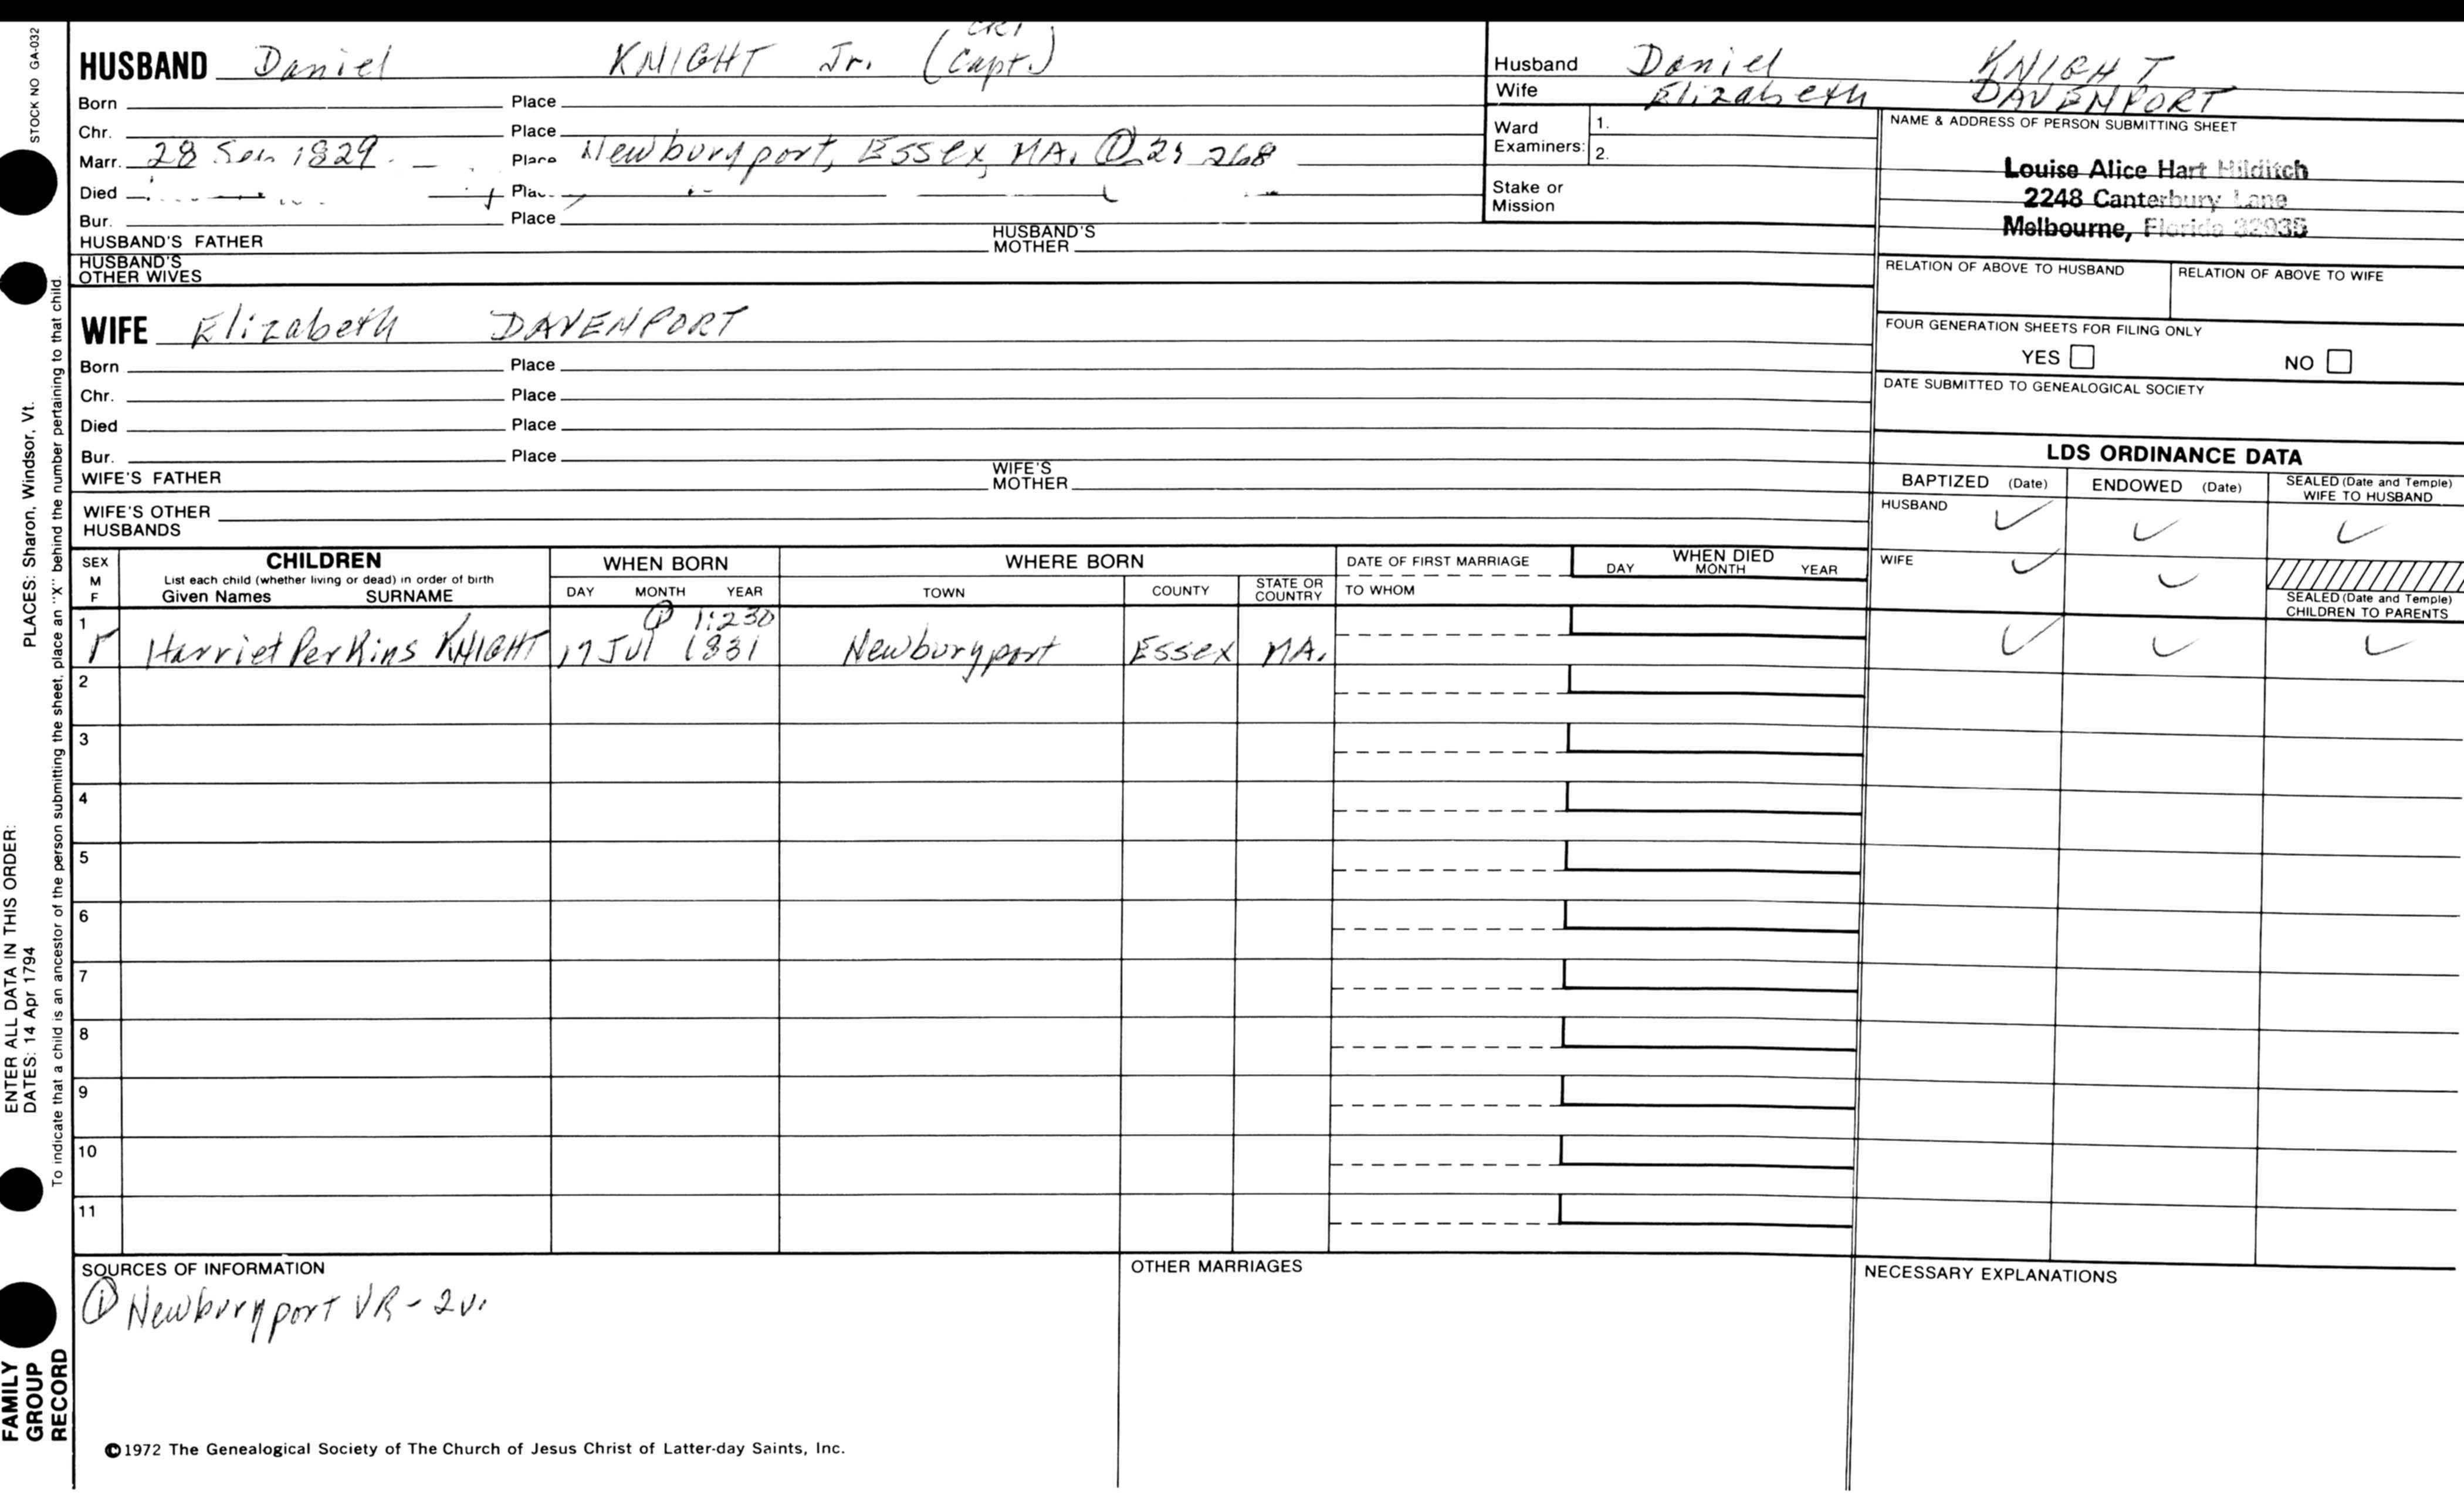 STOCK NO GA-032
HUSBAND Daniel KNIGHT Jr. (Capt.)
Born Place
Chr. Place
Marr. 28 Sep 1829 Place Newburyport, Essex, MA. ① 2: 268
Died
Bur. Place
HUSBAND'S FATHER HUSBAND'S MOTHER
HUSBAND'S OTHER WIVES
WIFE Elizabeth DAVENPORT
Born Place
Chr. Place
Died Place
Bur. Place
WIFE'S FATHER WIFE'S MOTHER
WIFE'S OTHER HUSBANDS
Husband Daniel KNIGHT
Wife Elizabeth DAVENPORT
Ward Examiners: 1.
2.
Stake or Mission
NAME & ADDRESS OF PERSON SUBMITTING SHEET
Louise Alice Hart Hilditch
2248 Canterbury Lane
Melbourne, Florida 32935
RELATION OF ABOVE TO HUSBAND RELATION OF ABOVE TO WIFE
FOUR GENERATION SHEETS FOR FILING ONLY
YES NO
DATE SUBMITTED TO GENEALOGICAL SOCIETY
LDS ORDINANCE DATA
BAPTIZED (Date) ENDOWED (Date) SEALED (Date and Temple) WIFE TO HUSBAND
HUSBAND ✓ ✓ ✓
WIFE ✓ ✓
SEALED (Date and Temple) CHILDREN TO PARENTS
SEX M F
CHILDREN
List each child (whether living or dead) in order of birth
Given Names SURNAME
WHEN BORN
DAY MONTH YEAR
WHERE BORN
TOWN COUNTY STATE OR COUNTRY
DATE OF FIRST MARRIAGE
TO WHOM
WHEN DIED
DAY MONTH YEAR
① 1:230
1 F Harriet Perkins KNIGHT 17 Jul 1831 Newburyport Essex MA. ✓ ✓ ✓
2
3
4
5
6
7
8
9
10
11
SOURCES OF INFORMATION
① Newburyport VR - 2v.
OTHER MARRIAGES
NECESSARY EXPLANATIONS
©1972 The Genealogical Society of The Church of Jesus Christ of Latter-day Saints, Inc.
FAMILY
GROUP
RECORD
ENTER ALL DATA IN THIS ORDER:
DATES: 14 Apr 1794 PLACES: Sharon, Windsor, Vt.
To indicate that a child is an ancestor of the person submitting the sheet, place an "X" behind the number pertaining to that child.